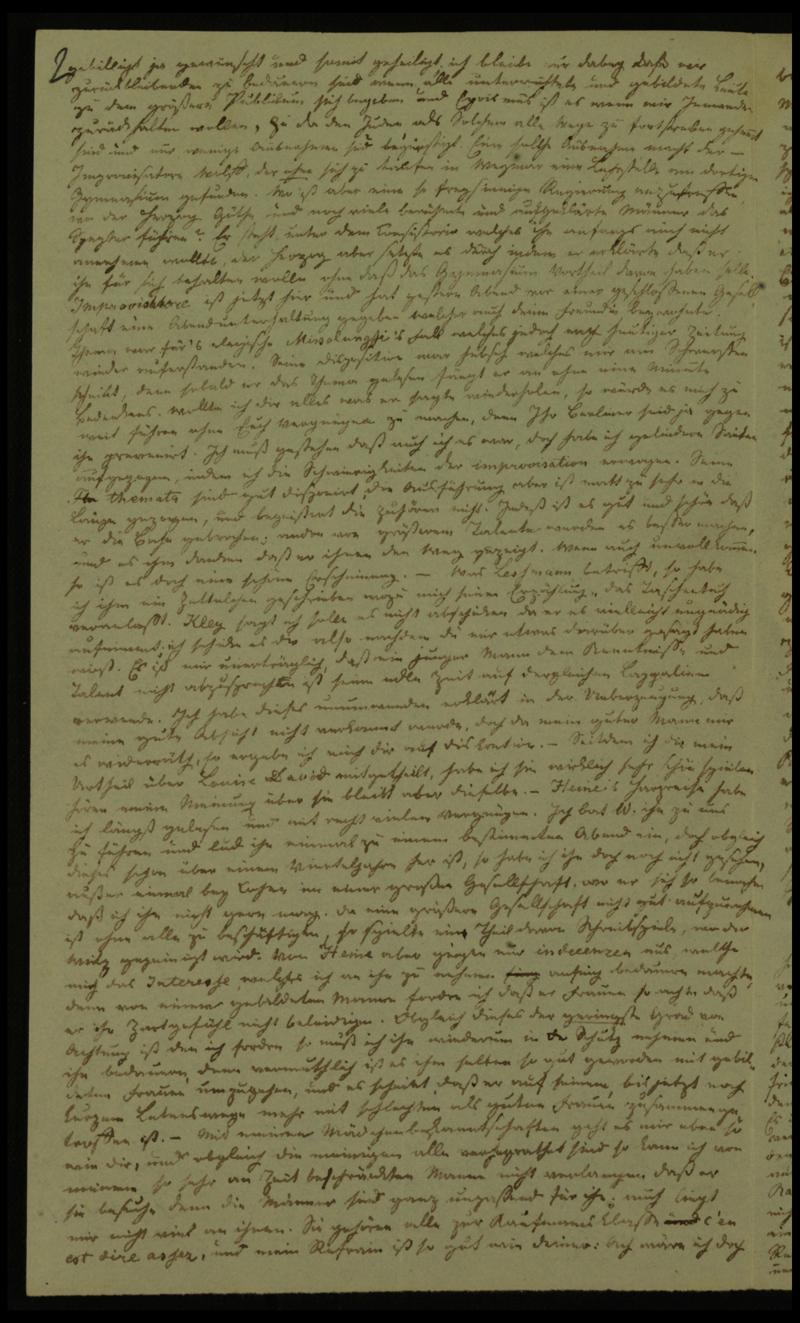 gebilligt ja gewünscht und somit geheiligt, ich bleibe nur dabey daß wir
zurückbleibenden zu bedauern sind wenn alle unterrichtete und gebildete Leute
zu dem größern Publikum sich begeben und Egoismus ist es wenn wir Jemanden
zurückhalten wollen, zu da den Juden als Solchen alle Wege zu fortstreben gehemmt
sind und nur wenige Ausnahmen sind begünstigt. Eine solche Ausnahme macht der –
Improvisatore Wolff, der ohne sich zu taufen in Weymar eine Lehrstelle am dortigen
Gymnasium gefunden. Wo ist aber eine so freysinnige Regierung anzutreffen
wo der Herzog Göthe und noch viele berühmte und aufgeklärte Männer das
Zepter führen? Er steht unter dem Consistorio welches ihn anfangs auch nicht
annehmen wollte, der Herzog aber setzte es durch indem er erklärte daß er
ihn für sich behalten wolle ohne daß das Gymnasium Vortheil davon haben solle.
Improvisatore ist jetzt hier und hat gestern Abend vor einer geschlossenen Gesell
schaft eine Abendunterhaltung gegeben welcher auch deine Freundin beywohnte.
Thema war für's elegische Missolunghi's Fall welches jedoch nach heutiger Zeitung
wieder auferstanden. Seine Disposition war hübsch welches mir am Schwersten
scheint, denn sobald er das Thema gelesen fängt er an ohne eine Minute
Bedenkens. Wollte ich dir alles was er sagte wiederholen, so würde es mich zu
weit führen ohne Euch Vergnügen zu machen, denn Ihr Berliner seid ja gegen
ihn prevenirt. Ich muß gestehen daß auch ich es war, doch habe ich gelindere Saiten
aufgezogen, indem ich die Schwierigkeiten der improvisation erwogen. Seine
themata sind gut disponirt die Ausführung aber ist matt zu sehr in die
Länge gezogen, und begeistert die Zuhörer nicht. Indeß ist es gut und schön daß
er die Bahn gebrochen; andre von größerem Talente werden es besser machen,
und es ihm danken daß er ihnen den Weg gezeigt. Wenn auch unvollkommen
so ist es doch eine schöne Erscheinung. – Was Lessmann betrifft, so habe
ich ihm ein Zettelchen geschrieben wozu mich seine Erzählung, das Taschentuch
veranlaßt. Kley sagt ich solle es nicht abschicken da er es vielleicht ungnädig
aufnimmt; ich schicke es dir also nachdem du mir etwas darüber gesagt haben
wirst. Es ist mir unerträglich, daß ein junger Mann dem Kenntnisse und
Talent nicht abzusprechen ist seine edle Zeit auf dergleichen Lappalien
verwende. Ich habe dieses unumwunden erklärt in der Ueberzeugung, daß
meine gute Absicht nicht verkannt werde, doch da mein guter Mann mir
es widerräth, so ergebe ich mich dir auf diskretion. – Seitdem ich dir mein
Urtheil über Louise David mitgetheilt, habe ich sie wirklich sehr schön spielen
hören meine Meinung über sie bleibt aber dieselbe. – Heine's Harzreise habe
ich längst gelesen und mit recht vielem Vergnügen. Ich bat W. ihn zu uns
zu führen und lud ihn einmal zu einem bestimmten Abend ein, doch obgleich
dieses schon über einem Vierteljahre her ist, so habe ich ihn doch noch nicht gesehen,
außer einmal bey Cohen in einer großen Gesellschaft, wo er sich so benahm
daß ich ihn nicht gern mag. Da eine größere Gesellschaft nicht gut aufzunehmen
ist ohne alle zu beschäftigen, so spielte ein Theil davon Schreibspiele, wo der
Witz gegeneinander wird. Von Heine aber gingen nur indecenzen aus, welche
mich das Interesse welches ich an ihn zu nehmen anfing bedauern machte,
denn von einem gebildeten Manne fordre ich daß er Frauen so achte daß
er ihr Zartgefühl nicht beleidige. Obgleich dieses der geringste Grad von
Achtung ist den ich fordre so muß ich ihn wiederum in Schutz nehmen und
ihn bedauern, denn vermuthlich ist es ihm selten so gut geworden mit gebil-
deten Frauen umzugehen, und es scheint daß er auf seinem, bis jetzt noch
kurzem Lebenswege mehr mit schlechten als guten Frauen zusammenge
troffen ist. – Mit meinen Mädchenbekanntschaften geht es mir eben so
wie dir, und obgleich die meinigen alle verheyrathet sind so kann ich von
meinem so sehr an Zeit beschränkten Manne nicht verlangen daß er
sie besuche denn die Männer sind ganz unpassend für ihn; auch liegt
mir nicht viel an ihnen. Sie gehören alle zur Kaufmanns Classe c'en
est dire assez, und mein Refrain ist so gut wie deiner: Ach wäre ich doch